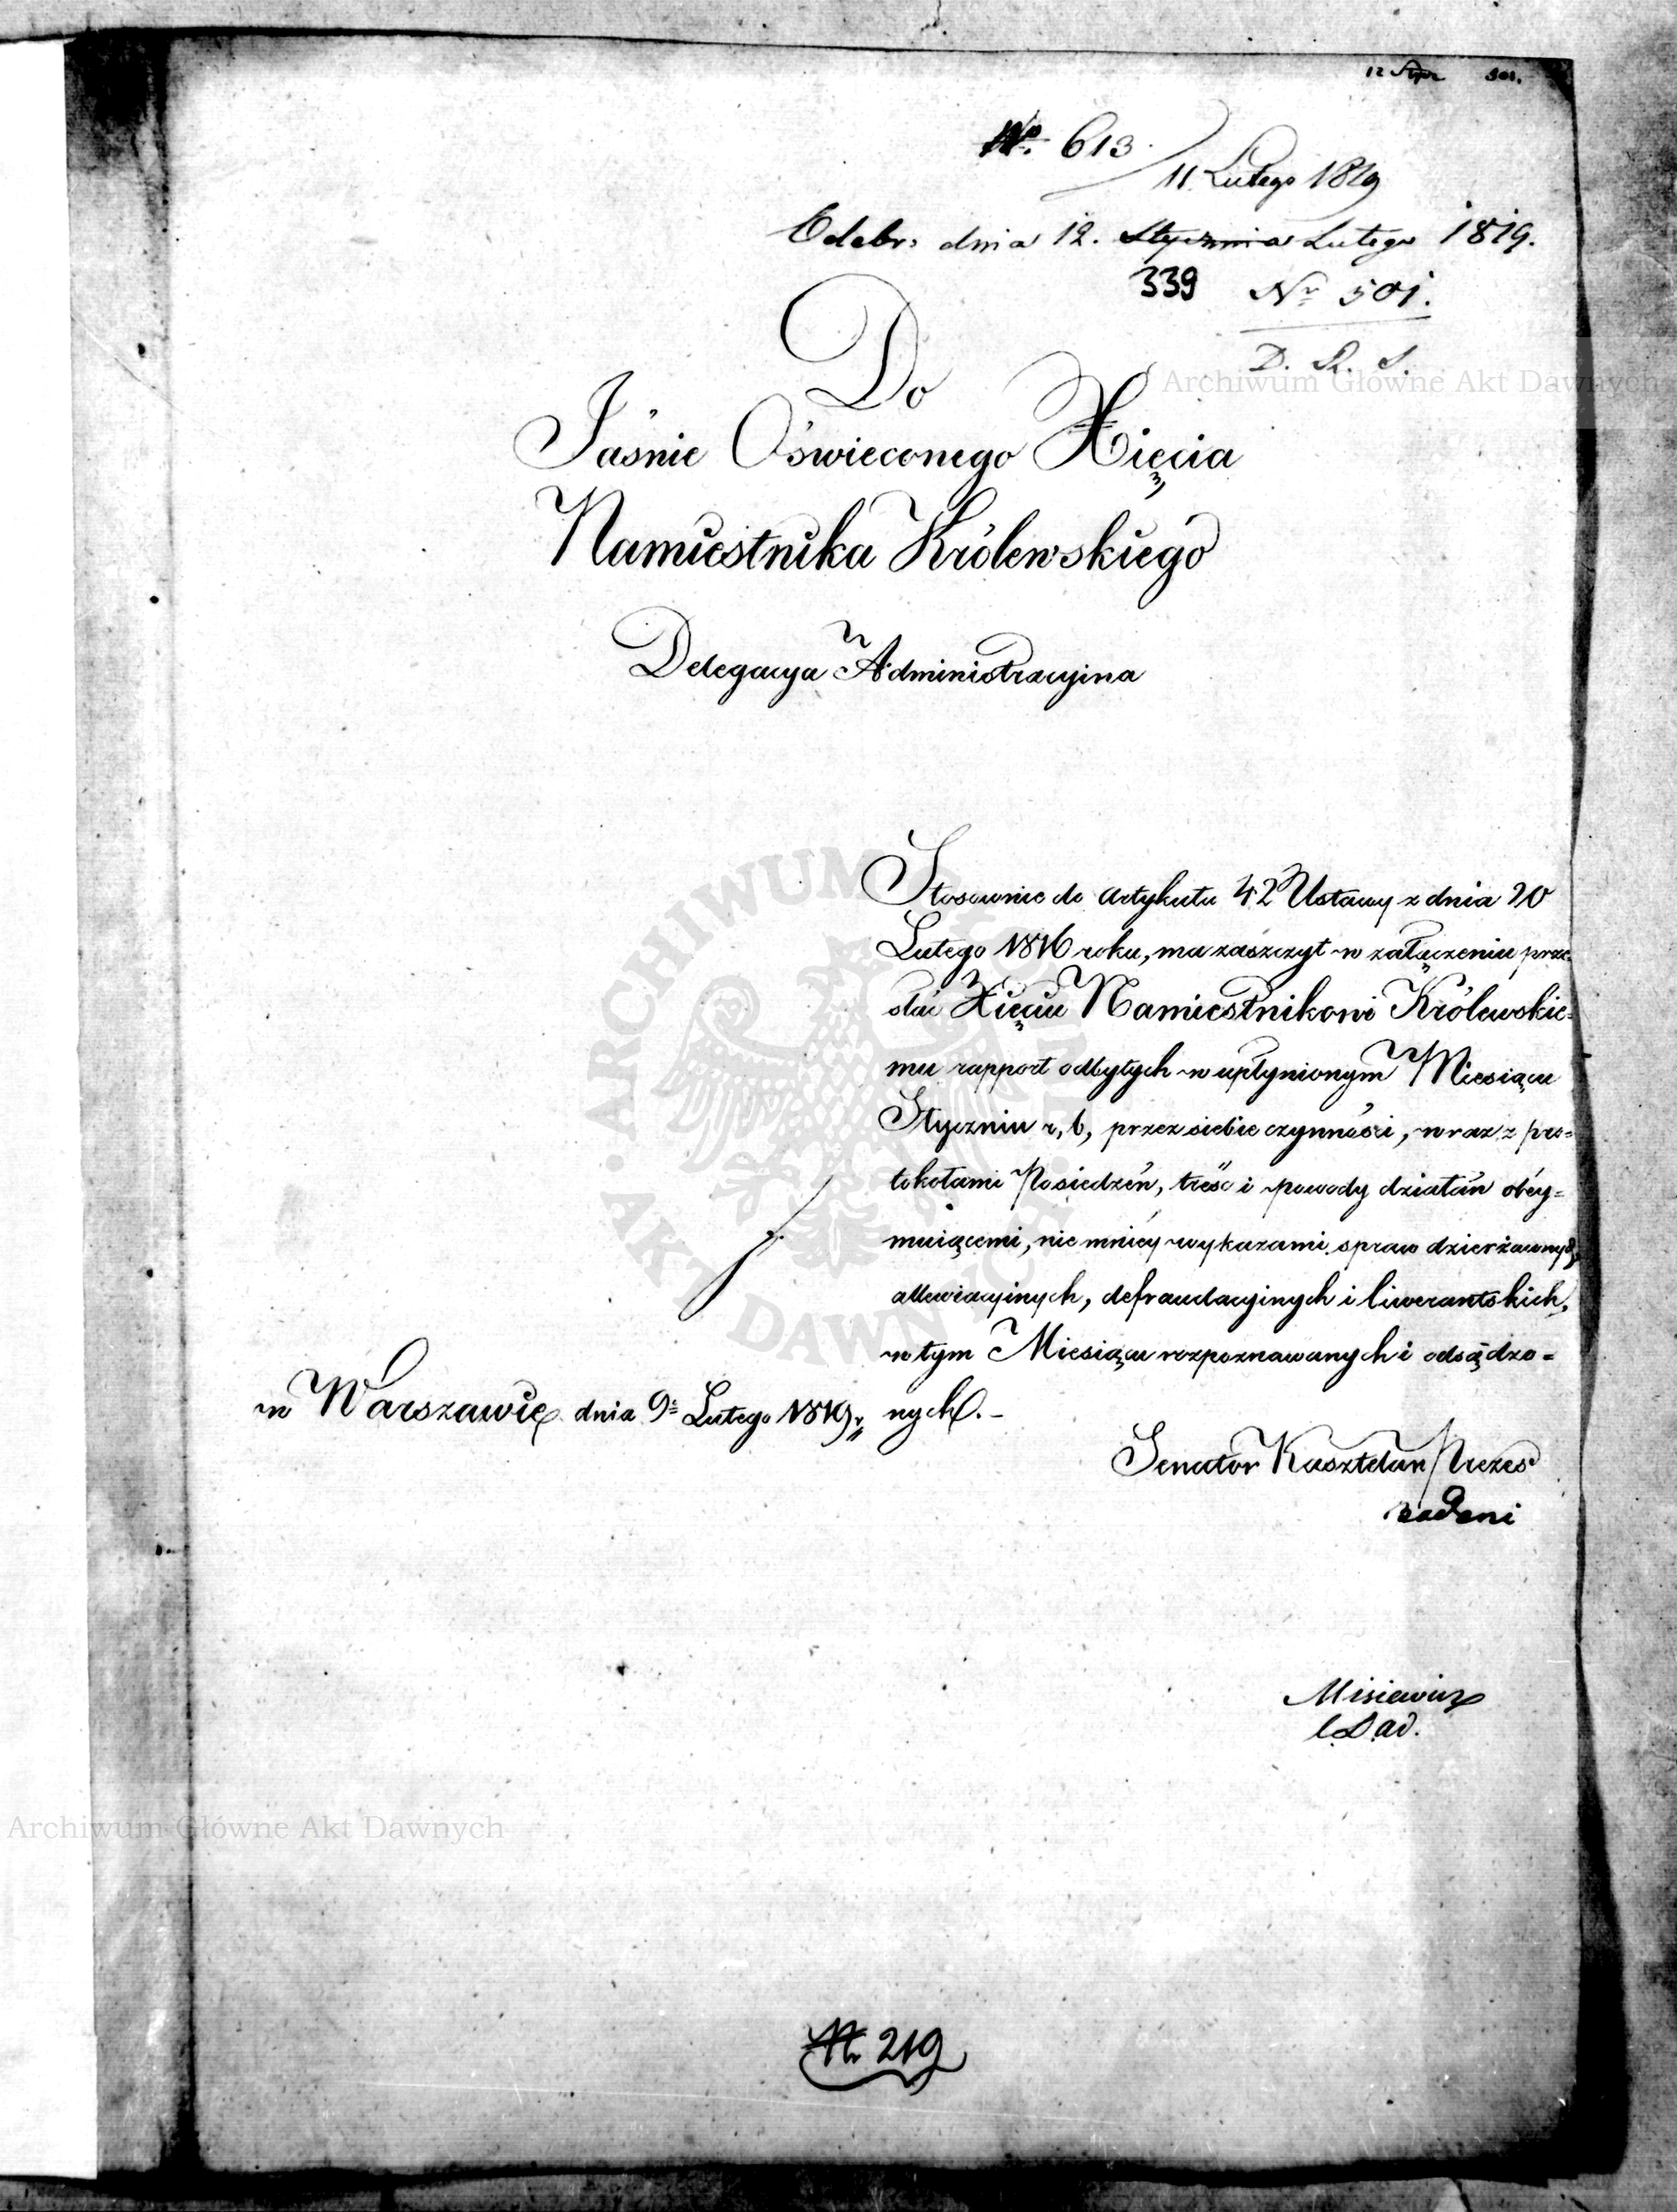 501.
No. 613.
11. Lutego 1819
Odebr: dnia 12. Stycznia Lutego 1819.
339 Nr 501.
D. R. S.
Do
Jaśnie Oświeconego Xięcia
Namiestnika Królewskiego
Delegacya Administracyina
Stosownie do Artykułu 42 Ustawy z dnia 20
Lutego 1816 roku, ma zaszczyt w załączeniu prze-
słać Xięciu Namiestnikowi Królewskie-
mu rapport odbytych w upłynionym Miesiącu
Styczniu r, b, przez siebie czynności, wraz z pro=
tokołami Posiedzeń, treść i powody działań obey=
muiącemi, nie mniey wykazami spraw dzierżawnych,
allewiacyinych, defraudacyinych i liwerantskich,
w tym Miesiącu rozpoznawanych i odsądzo=
nych.-
w Warszawie dnia 9o Lutego 1819r.
Senator Kasztelan Prezes
Misiewicz
Nr 219
Archiwum Główne Akt Dawnych
Archiwum Główne Akt Dawnych
ARCHIWUM GŁÓWNE AKT DAWNYCH